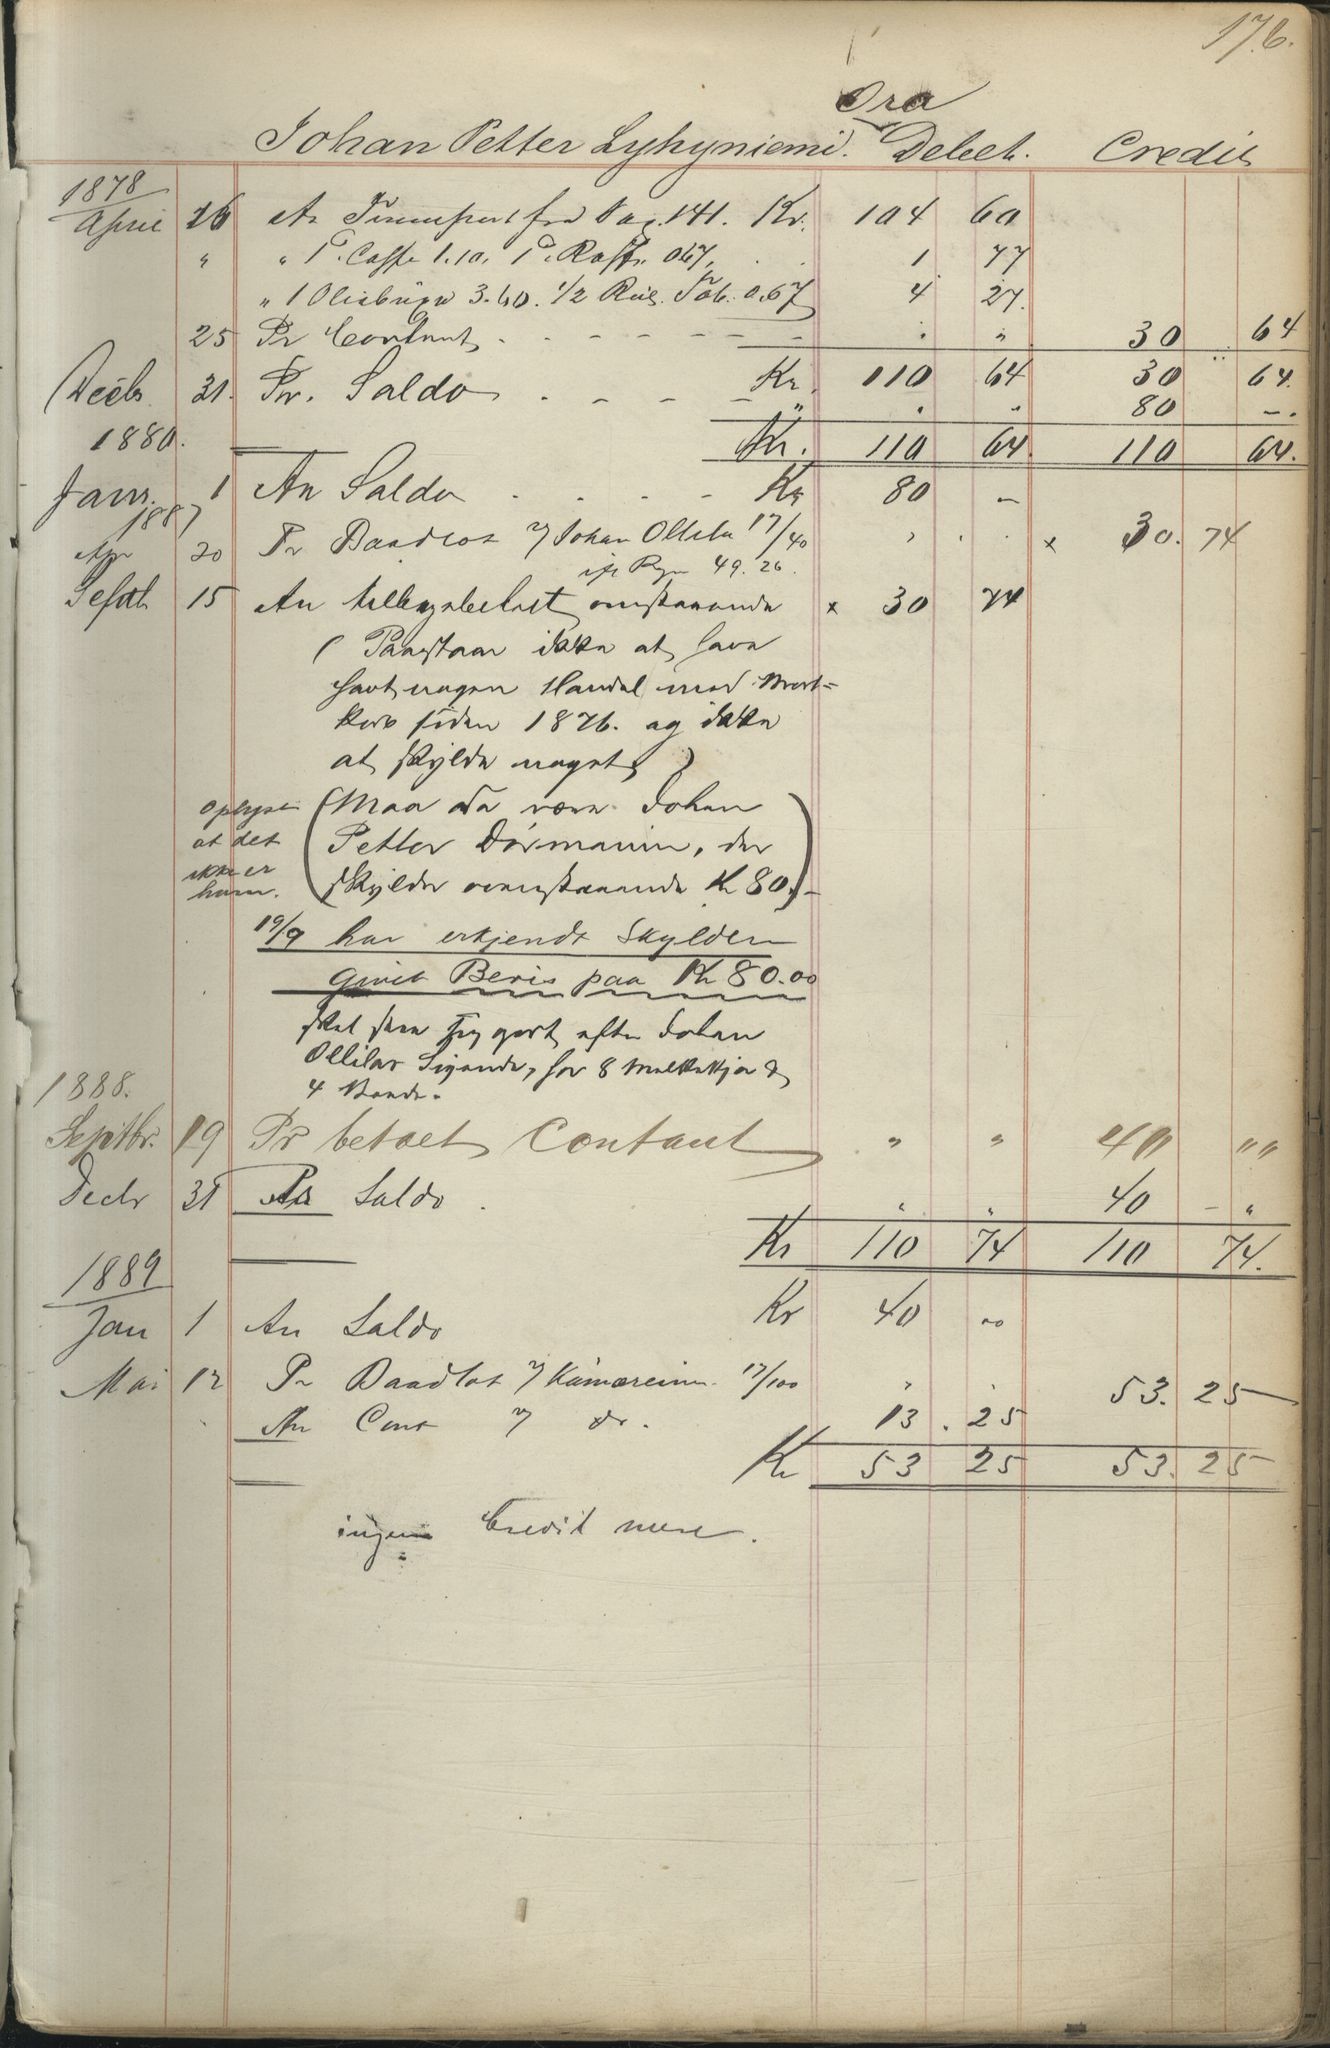 176.
Ora
Johan Petter Lyhyniemi. Debet. Credit
1878
April 26 An Transport fra Pag. 141. Kr. 104 60
" " 1 P. Caffe 1.10, 1 P. Raff. 067, . . 1 77
" 1 Oliebuxe 3.60. 1/2 Rul. Tob. 0.67 4 27.
25 Pr Contant . . - - - - - . " 30 64
Kr. 110 64 30 64.
Decbr 31. Pr. Saldo . - - - " . " 80 -.
1880. Kr. 110 64. 110 64.
Janr. 1 An Saldo . . . . - Kr 80 -
1887
Apr 20 Pr Baadlot 7 Johan Ollila 17/40 , . . x 30. 74
Rgn 49. 26.
Septb 15 An tilbagebetalt ovenstaaende x 30 74
( Paastaar ikke at have
havt nogen Handel med
siden 1876. og ikke
at skylde noget )
oplyst at det ikke er ham.
(Maa da være Johan
Petter Dörmänin, der
skylder ovenstaaende Kr 80.)-
19/9 har erkjendt Skylden
givet Bevis paa Kr 80.00
skal have efter Johan
Ollilas Sigende, har 8 Melkekjør &
4
1888.
Septbr. 19 Pr betalt Contant " " 40 ""
Decbr 31 Pr Saldo . " " 40 - "
Kr 110 74 110 74.
1889
Jan 1 An Saldo Kr 40 00
Mai 12 Pr Baadlot 7 17/100 , . 53. 25
An Cont 7 do. 13. 25
Kr 53 25 53. 25
ingen Credit mere.